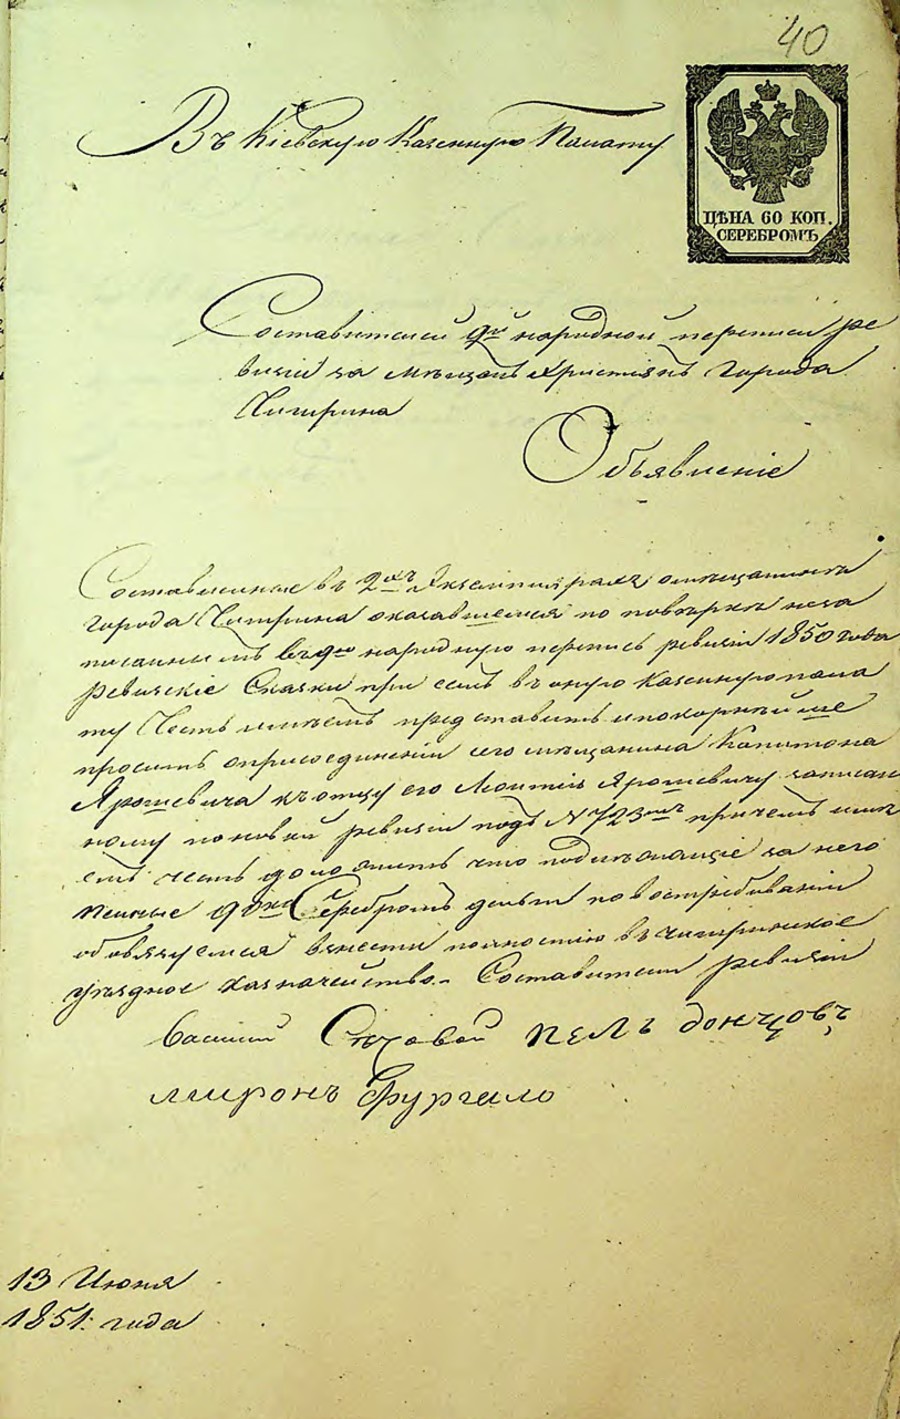 40
Въ Кіевскую Казенную Палату
ЦѢНА 60 КОП.
СЕРЕБРОМЪ
Составителей 9й народной переписи ре
визіи за мѣщанъ Христіянъ города
Чигрина
Объявленіе
Составленные въ 2хъ Экземплярахъ о мѣщанинѣ
города Чигрина оказавшемся по повѣркѣ неза
писаннымъ въ 9ю народную перепись ревизіи 1850 года
ревизскіе Сказки при семъ въ оную казенную пала
ту Честь имѣемъ представить и покорнѣйше
просить о присоединеніи сего мѣщанина Капитона
Ярошевича къ отцу его Леонтію Ярошевичу записан
ному по новой ревизіи подъ N 723мъ причемъ имѣ
емъ честь доложить что подлѣжащіе за него
пенные 90 ко Серебромъ деньги по востребованіи
обовязуемся внести полностію въ Чигринское
уѣздное казначейство. Составители ревизіи
Василій Суховой
миронъ Фургало
13 Июня
1851. года